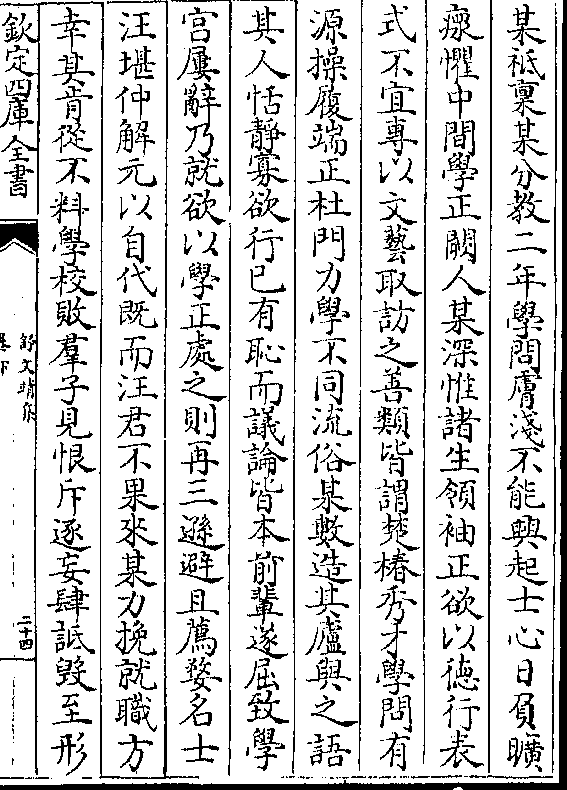 某祗稟某分教二年學問膚淺不能興起士心日負曠
瘝懼中間學正闕人某深惟諸生領袖正欲以徳行表
式不宜専以文藝取訪之善類皆謂楚椿秀才學問有
源操履端正杜門力學不同流俗某數造其廬與之語
其人恬靜寡欲行已有恥而議論皆本前輩遂屈致學
宫屢辭乃就欲以學正處之則再三遜避且薦婺名士
汪堪仲解元以自代既而汪君不果來某力挽就職方
幸其肯從不料學校敗羣子見恨斥逐妄肆詆毁至形
欽定四庫全書
舒文靖集
二十四